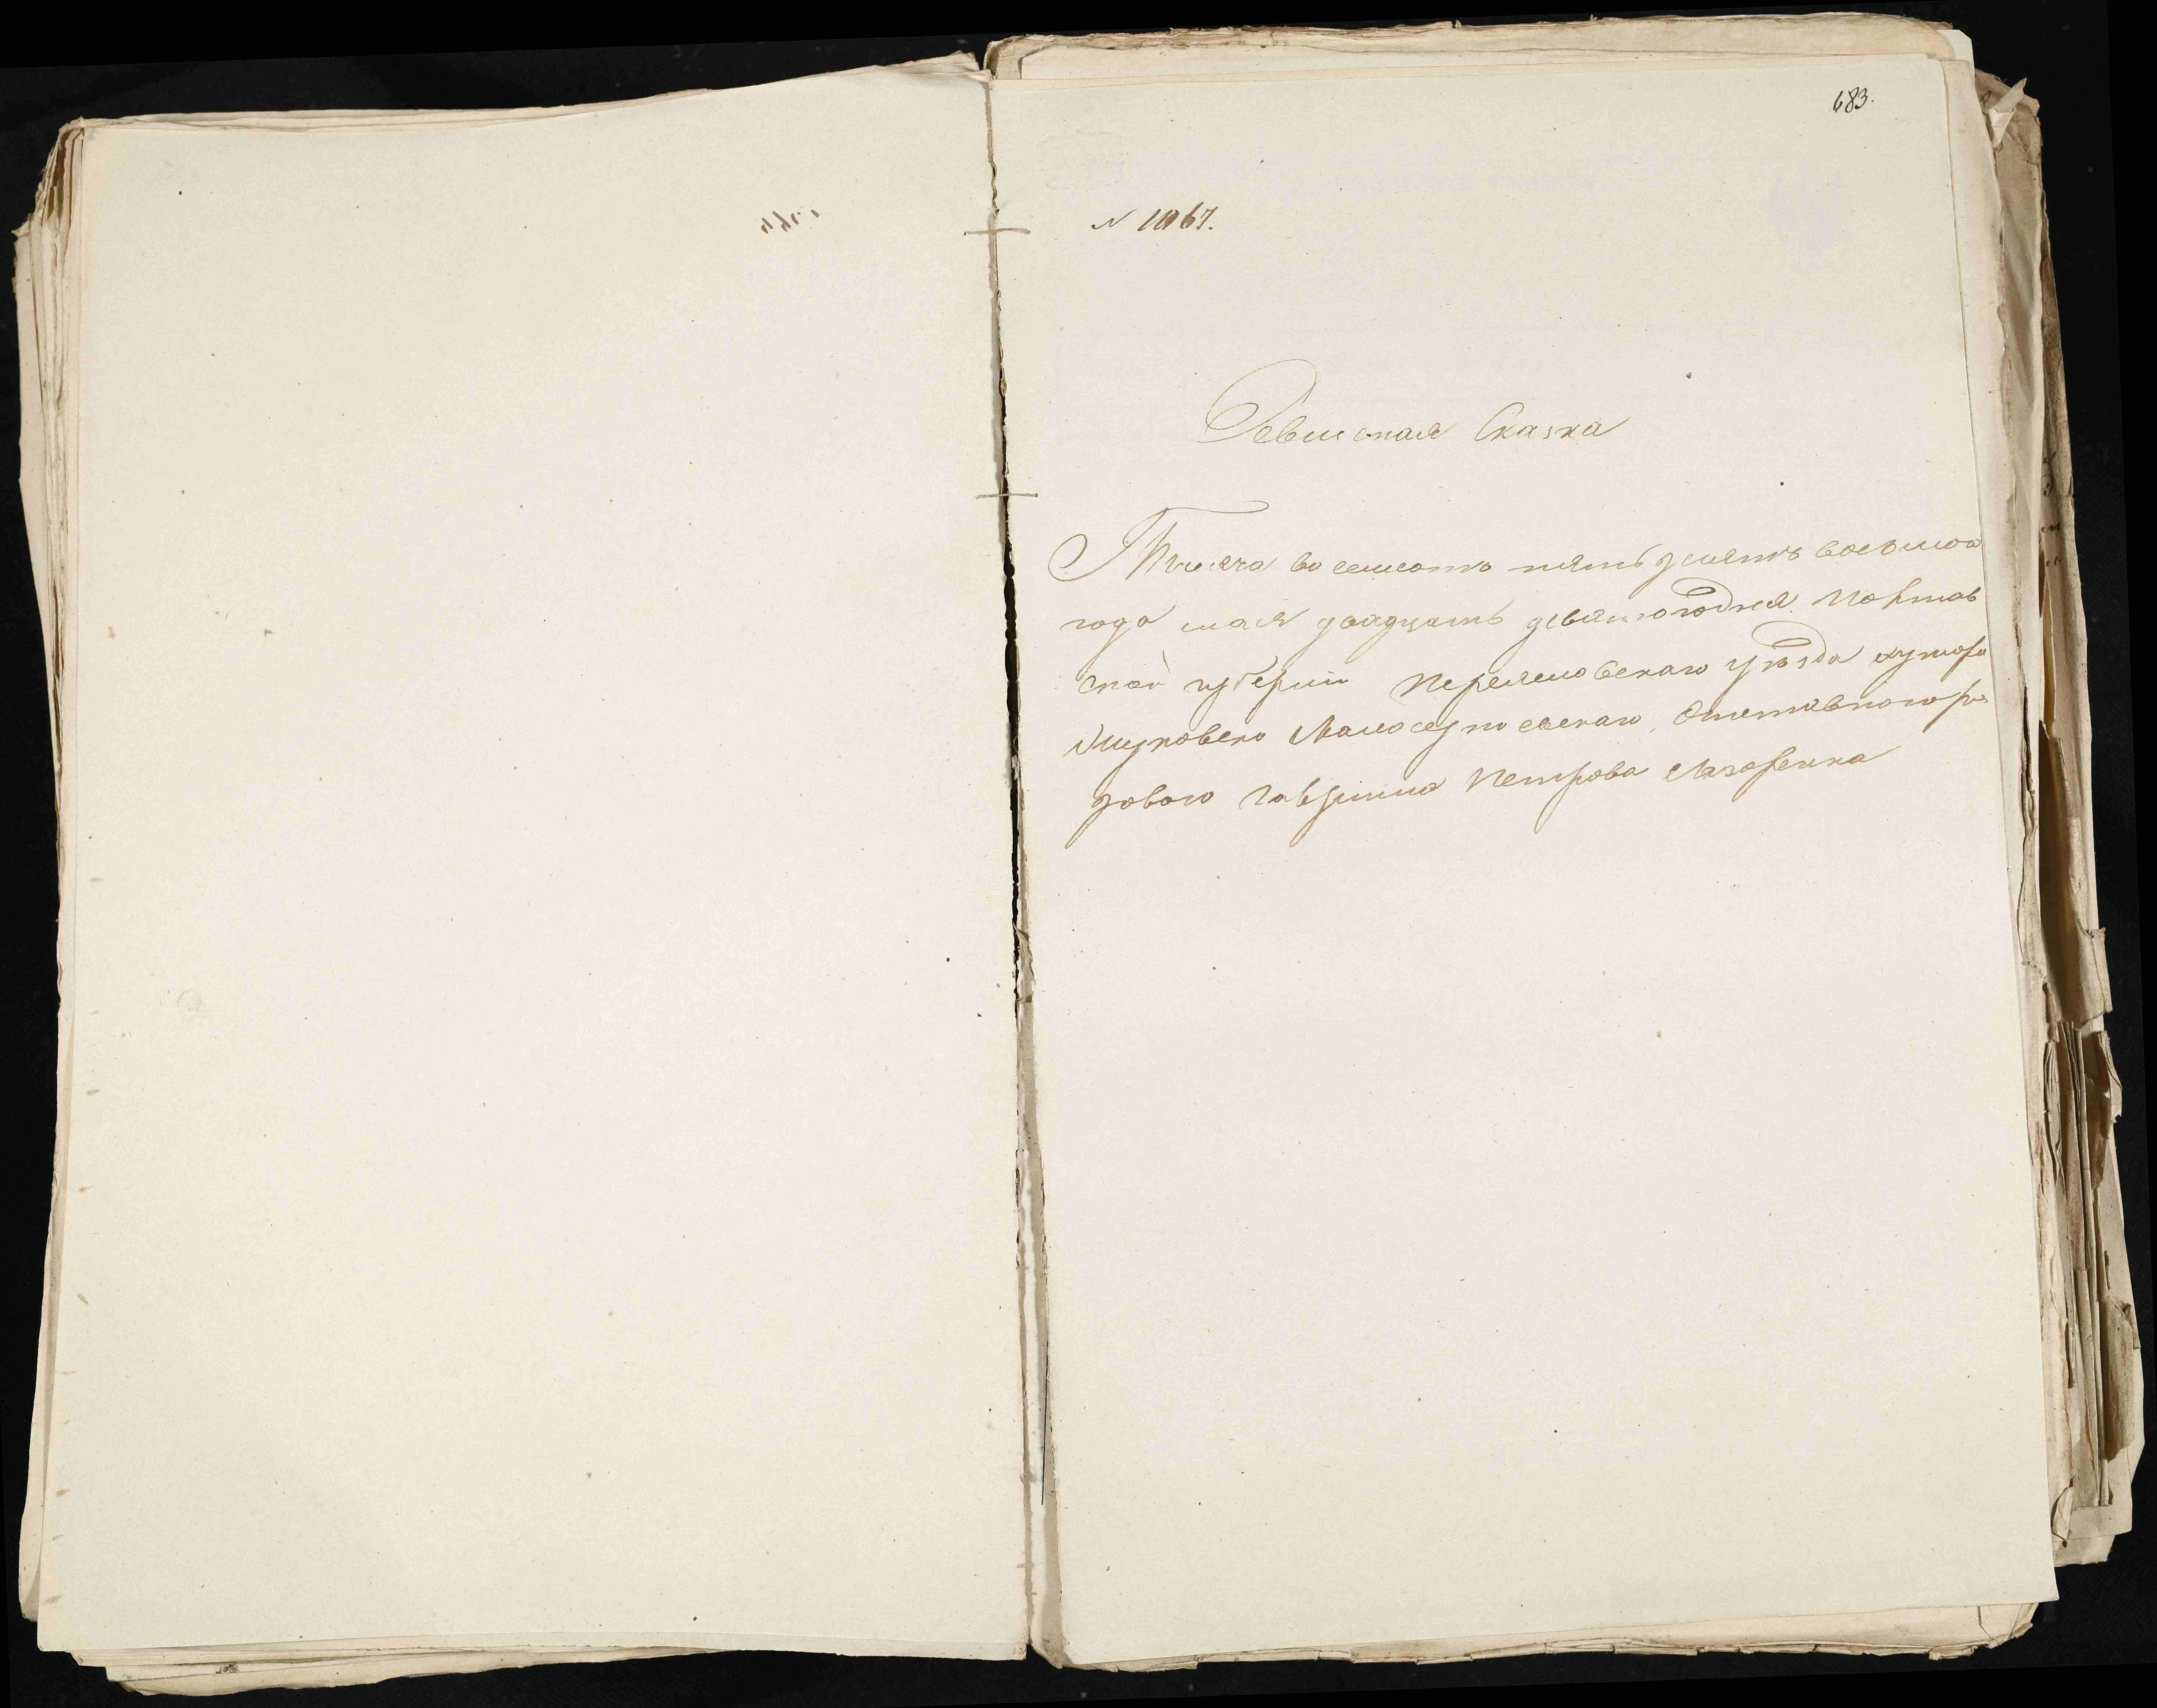 683.
N 1067.
Ревизская Сказка
Тысяча восемсотъ пятьдесятъ восьмаго
года мая двадцать девятого дня Полтав
ской губерніи Переяславскаго уѣзда хутора
Отставного ря
дового Гавріила Петрова Лазаренка